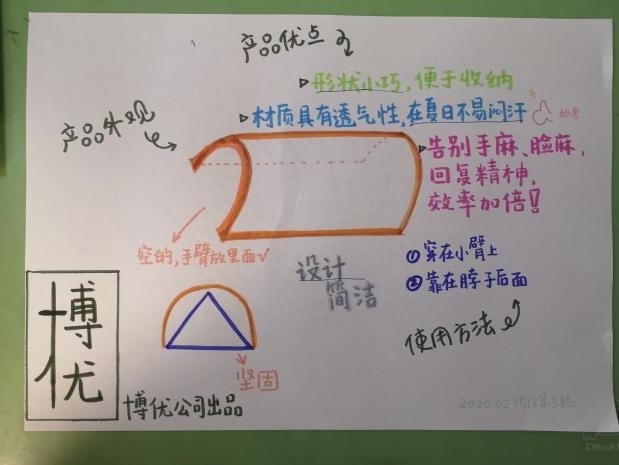 产品优点
形状小巧,便于收纳
材质具有透气性,在夏日不易闷汗
产品外观
告别手麻、脸麻,
回复精神,
效率加倍!
空的,手臂放里面√
设计
简洁
①穿在小臂上
②靠在脖子后面
使用方法
坚固
博优
博优公司出品
2020.02修改第5稿